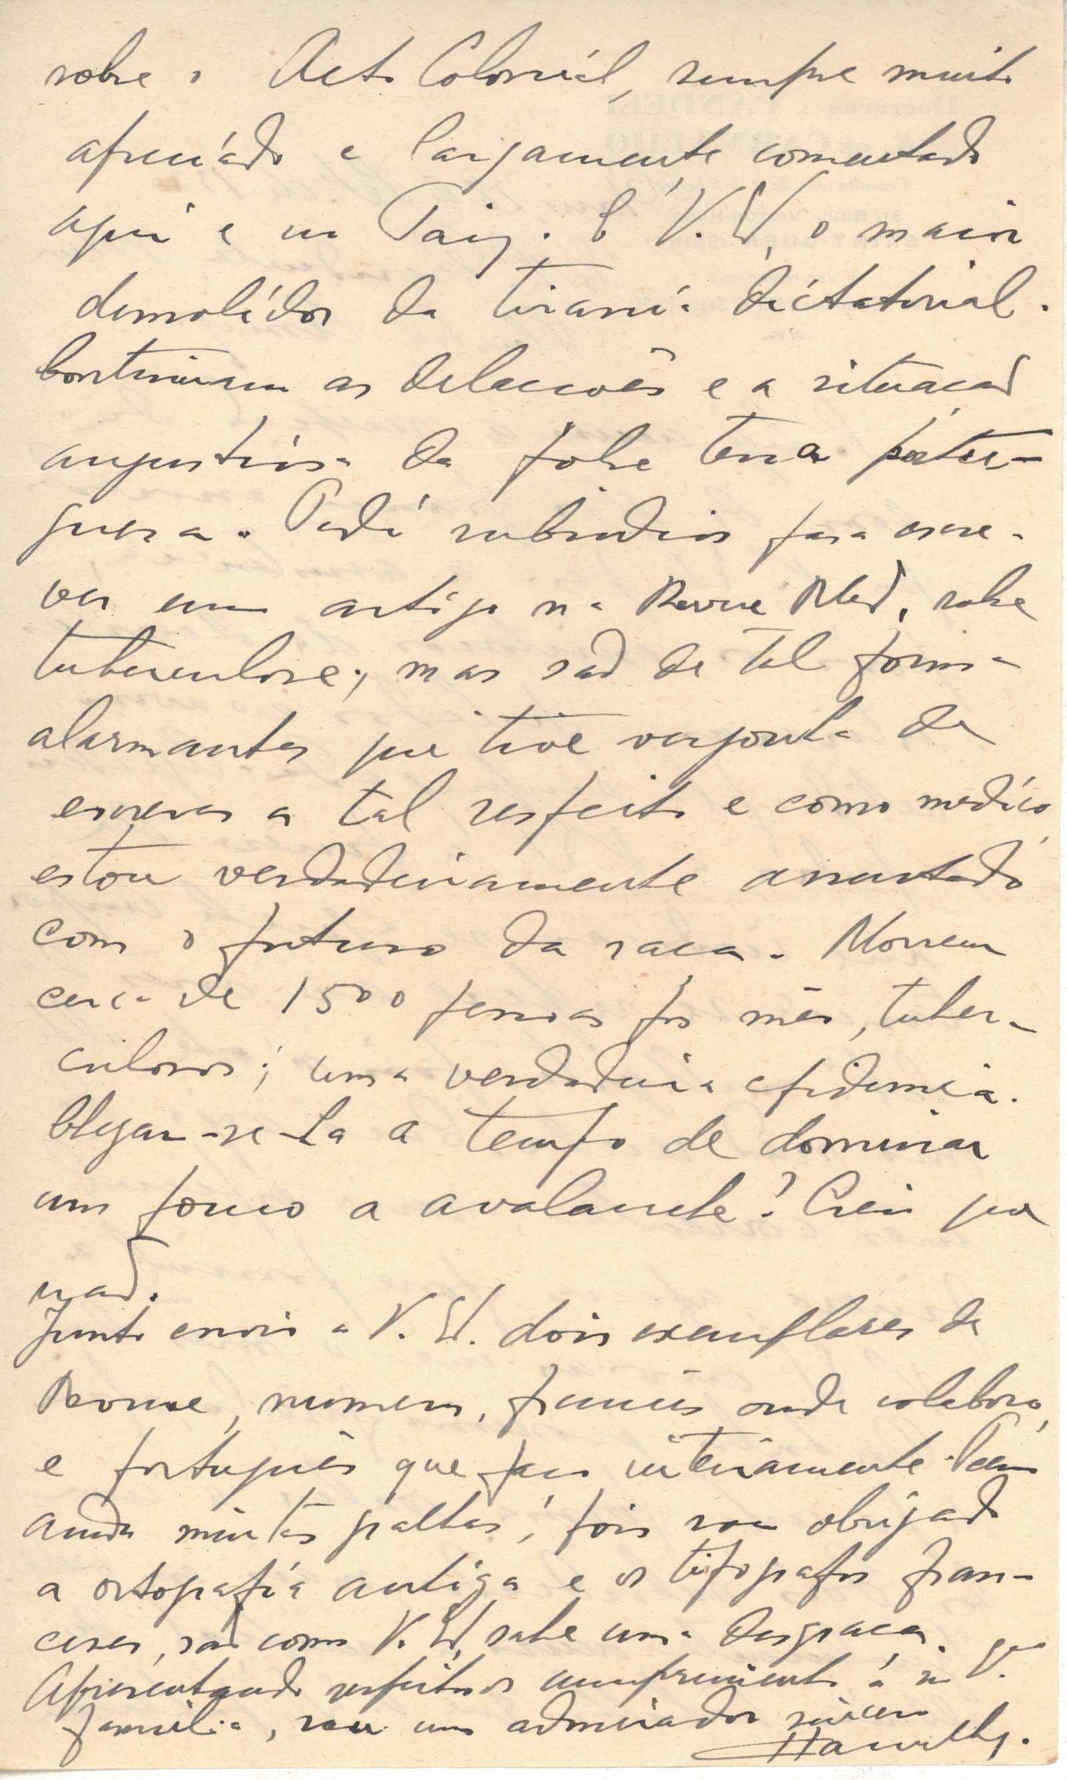 sobre o Acto Colonial, sempre muito
apreciádo e largamente comentado
aqui e no Paiz. É V. Ex., o maior
demolidor da tirania dictatorial.
Continuam as delacões e a situacão
angustiosa da pobre terra portu-
guesa. Pedi subsidios para escre-
ver um artigo na Revue Med. sobre
tuberculose; mas são de tal forma
alarmantes que tive vergonha de
escrever a tal respeito e como medico,
estou verdadeiramente assustado
com o futuro da raca. Morrem
cerca de 1500 pessoas por mês, tuber-
culosos; uma verdadeira epidemia.
Chegar-se-ha a tempo de dominar
um pouco a avalanche? Creio que
não.
Junto envio a V. Ex. dois exemplares da
Revue, numero, francês onde colaboro,
e português que faço inteiramente. Tem
ainda muitas faltas, pois sou obrigado
a ortografia antiga e os tipografos fran-
ceses, são como V. Ex. sabe uma desgraca.
Apresentando respeitosos cumprimentos á V.
familia, sou um admirador sincero